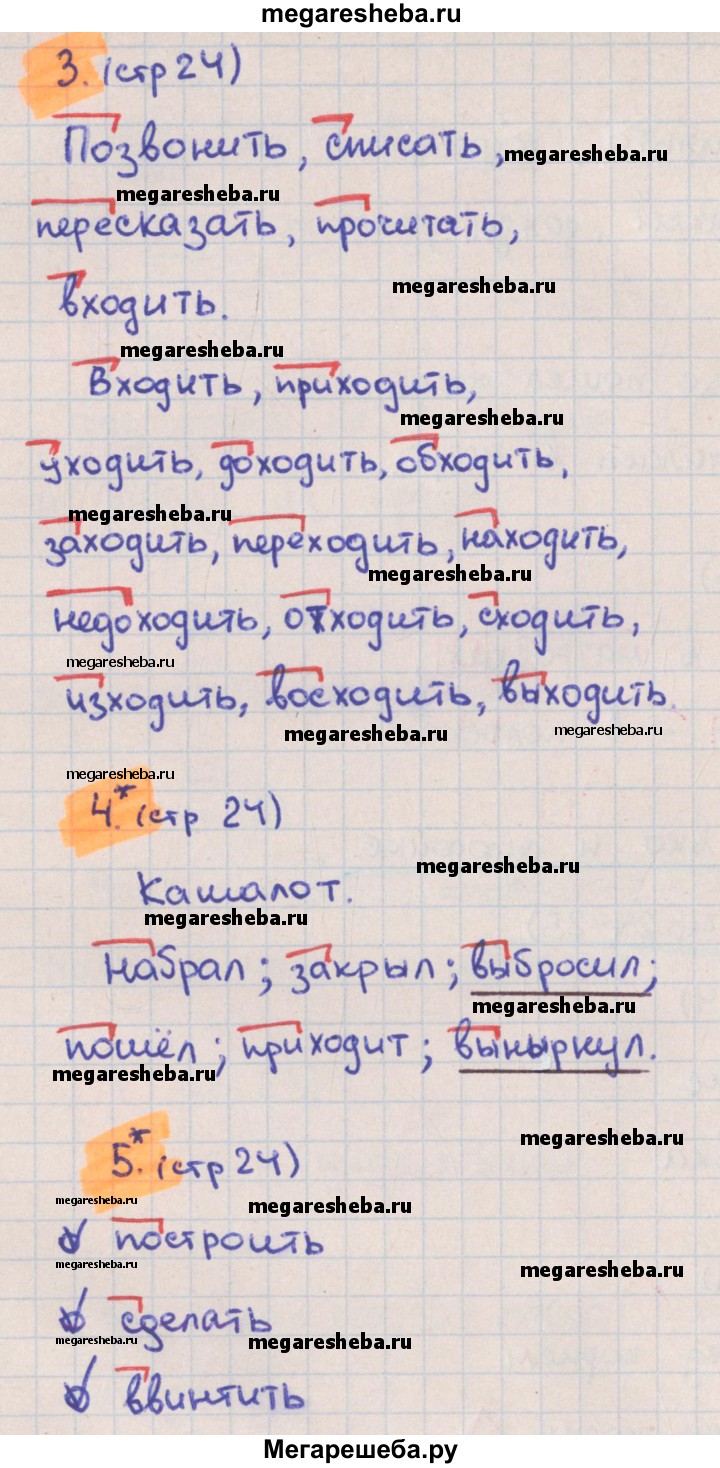 megaresheba.ru
3. (стр 24)
Позвонить, списать, megaresheba.ru
megaresheba.ru
пересказать, прочитать,
megaresheba.ru
входить.
megaresheba.ru
Входить, приходить,
megaresheba.ru
уходить, доходить, обходить,
megaresheba.ru
заходить, переходить, находить,
megaresheba.ru
недоходить, отходить, сходить,
megaresheba.ru
изходить, восходить, выходить.
megaresheba.ru megaresheba.ru
megaresheba.ru
4.* (стр 24)
megaresheba.ru
Кашалот.
megaresheba.ru
набрал; закрыл; выбросил;
megaresheba.ru
пошёл; приходит; вынырнул.
megaresheba.ru
megaresheba.ru
5.* (стр 24)
megaresheba.ru megaresheba.ru
построить
megaresheba.ru megaresheba.ru
сделать
megaresheba.ru megaresheba.ru
ввинтить
Мегарешеба.ру